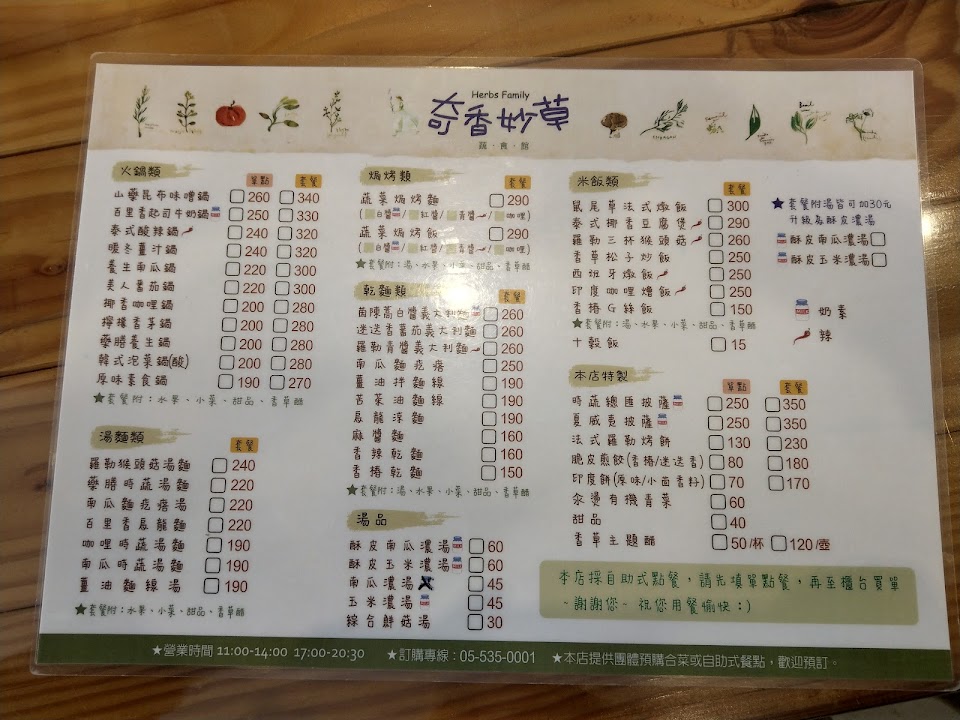 Herbs Family
奇香妙草
蔬·食·館
火鍋類
單點 套餐
山藥昆布味噌鍋 260 340
百里香起司牛奶鍋 250 330
泰式酸辣鍋 240 320
暖冬薑汁鍋 240 320
養生南瓜鍋 220 300
美人番茄鍋 220 300
椰香咖哩鍋 200 280
檸檬香茅鍋 200 280
藥膳養生鍋 200 280
韓式泡菜鍋(酸) 200 280
原味素食鍋 190 270
★套餐附:水果、小菜、甜品、香草醋
湯麵類
套餐
羅勒猴頭菇湯麵 240
藥膳時蔬湯麵 220
南瓜麵疙瘩湯 220
百里香烏龍麵 220
咖哩時蔬湯麵 190
南瓜時蔬湯麵 190
薑油麵線湯 190
★套餐附:水果、小菜、甜品、香草醋
焗烤類
套餐
蔬菜焗烤麵 290
(白醬/紅醬/青醬/咖哩)
蔬菜焗烤飯 290
(白醬/紅醬/青醬/咖哩)
★套餐附:湯、水果、小菜、甜品、香草醋
乾麵類
套餐
茵陳蒿白醬義大利麵 260
迷迭香番茄義大利麵 260
羅勒青醬義大利麵 260
南瓜麵疙瘩 250
薑油拌麵線 190
苦茶油麵線 190
烏龍涼麵 190
麻醬麵 160
香辣乾麵 160
香椿乾麵 150
★套餐附:湯、水果、小菜、甜品、香草醋
湯品
酥皮南瓜濃湯 60
酥皮玉米濃湯 60
南瓜濃湯 45
玉米濃湯 45
綜合鮮菇湯 30
米飯類
套餐
鼠尾草法式燉飯 300
泰式椰香豆腐煲 290
羅勒三杯猴頭菇 260
香草松子炒飯 250
西班牙燉飯 250
印度咖哩燴飯 250
香椿G絲飯 150
★套餐附:湯、水果、小菜、甜品、香草醋
十穀飯 15
★套餐附湯皆可加30元
升級為酥皮濃湯
酥皮南瓜濃湯
酥皮玉米濃湯
奶素
辣
本店特製
單點 套餐
時蔬總匯披薩 250 350
夏威夷披薩 250 350
法式羅勒烤餅 130 230
脆皮煎餃(香椿/迷迭香) 80 180
印度餅(原味/小茴香籽) 70 170
汆燙有機青菜 60
甜品 40
香草主題醋 50/杯 120/壺
本店採自助式點餐,請先填單點餐,再至櫃台買單
~謝謝您~ 祝您用餐愉快:)
★營業時間 11:00-14:00 17:00-20:30 ★訂購專線:05-535-0001 ★本店提供團體預購合菜或自助式餐點,歡迎預訂。